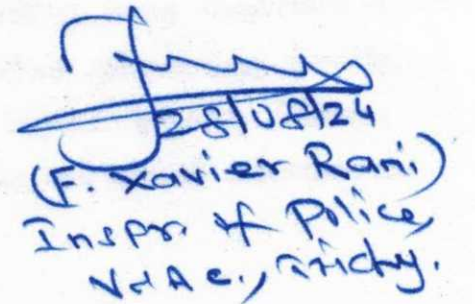 28/08/24
(F. Xavier Rani)
Inspr. of Police,
V&AC., Trichy.